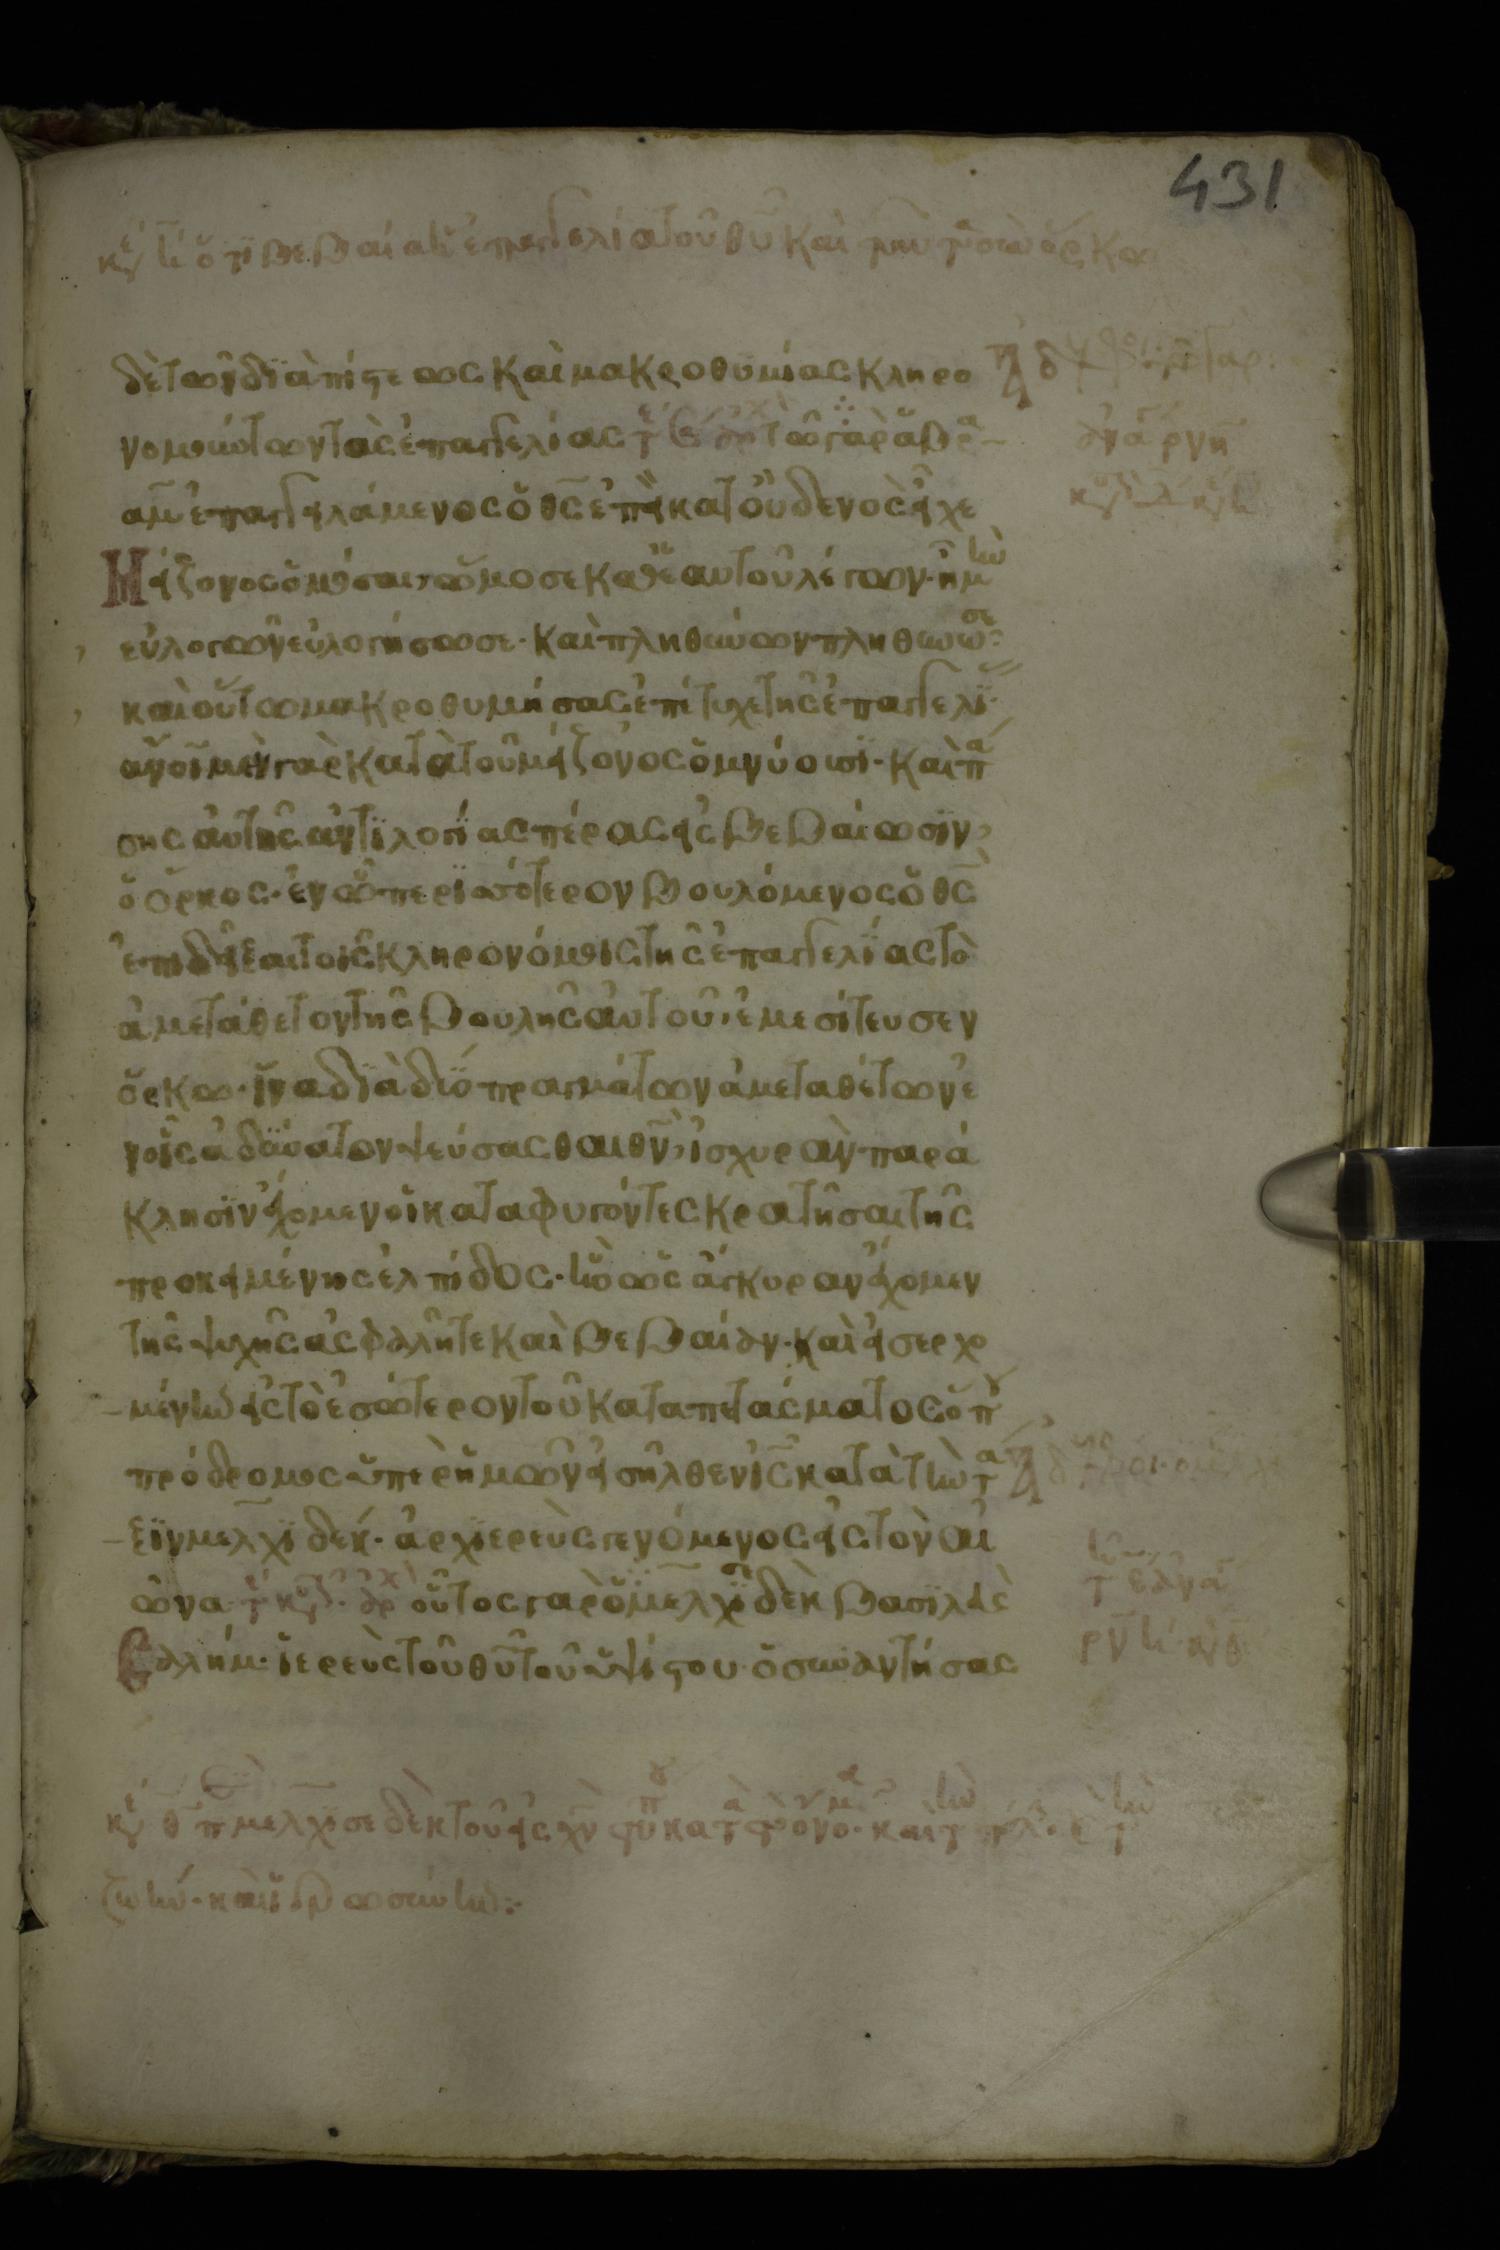 431
ὅτι βεβαία ἡ ἐπαγγελία τοῦ θυ καὶ ὅρκω
δὲ τῶν διὰ πίστεως καὶ μακροθυμίας κληρο
νομούντων τὰς ἐπαγγελίας τῶ γὰρ ἀβρα
αμ ἐπαγγειλάμενος ὁ θς ἐπεὶ κατ οὐδενὸς εἶχε
Μείζονος ὀμόσαι, ὤμοσε καθ ἑαυτοῦ λέγων· ἦ μὴν
εὐλογῶν εὐλογήσω σε· καὶ πληθύνων πληθυνῶ σε·
καὶ οὕτω μακροθυμήσας ἐπέτυχε τῆς ἐπαγγελί
ανοι μὲν γὰρ κατὰ τοῦ μείζονος ὀμνύουσι· καὶ πά
σης αὐτῆς ἀντιλογίας πέρας εἰς βεβαίωσιν,
ὁ ὅρκος· ἐν ὧ περισσότερον βουλόμενος ὁ θς
ἐπιδεῖξαι τοῖς κληρονόμοις τῆς ἐπαγγελίας τὸ
ἀμετάθετον τῆς βουλῆς αὐτοῦ, ἐμεσίτευσεν
ὅρκω· ἵνα διὰ δύο πραγμάτων ἀμεταθέτων ἐ
νοῖς ἀδύνατον ψεύσασθαι θν, ἰσχυρὰν παρά
κλησιν ἔχομεν οἱ καταφυγόντες κρατῆσαι τῆς
προκειμένης ἐλπίδος· ἣν ὡς ἄγκυραν ἔχομεν
τῆς ψυχῆς ἀσφαλῆ τε καὶ βεβαίαν· καὶ εἰσερχο
μένην εἰς τὸ ἐσώτερον τοῦ καταπετάσματος ὅπου
πρόδρομος ὑπὲρ ἡμῶν εἰσῆλθεν ις κατὰ τὴν τά
ξιν μελχισεδέκ· ἀρχιερεὺς γενόμενος εἰς τὸν αἰ
ῶνα οὗτος γὰρ ὁ μελχισεδὲκ βασιλεὺς
σαλήμ· ἱερεὺς τοῦ θυ τοῦ ὑψίστου· ὁ συναντήσας
μελχισεδὲκ τοῦ εἰς χν